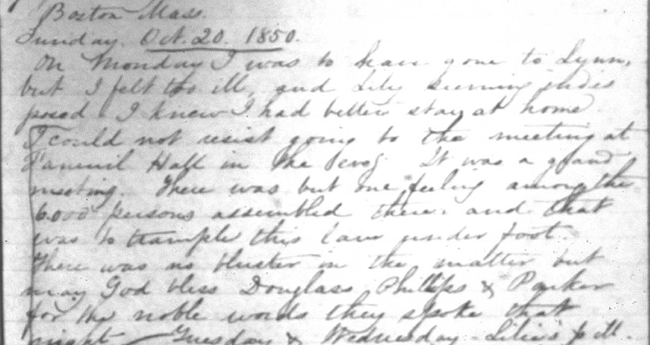 Boston Mass.
Sunday. Oct. 20. 1850.
On Monday I was to have gone to Lynn,
but I felt too ill, and Lily seeming indis
posed I knew I had better stay at home.
I could not resist going to the meeting at
Faneuil Hall in the eveg. It was a grand
meeting. There was but one feeling among the
6.000 persons assembled there, and that
was to trample this law under foot.
There was no bluster in the matter but
may God bless Douglass, Phillips & Parker
for the noble words they spoke that
night - Tuesday & Wednesday - Lilie's